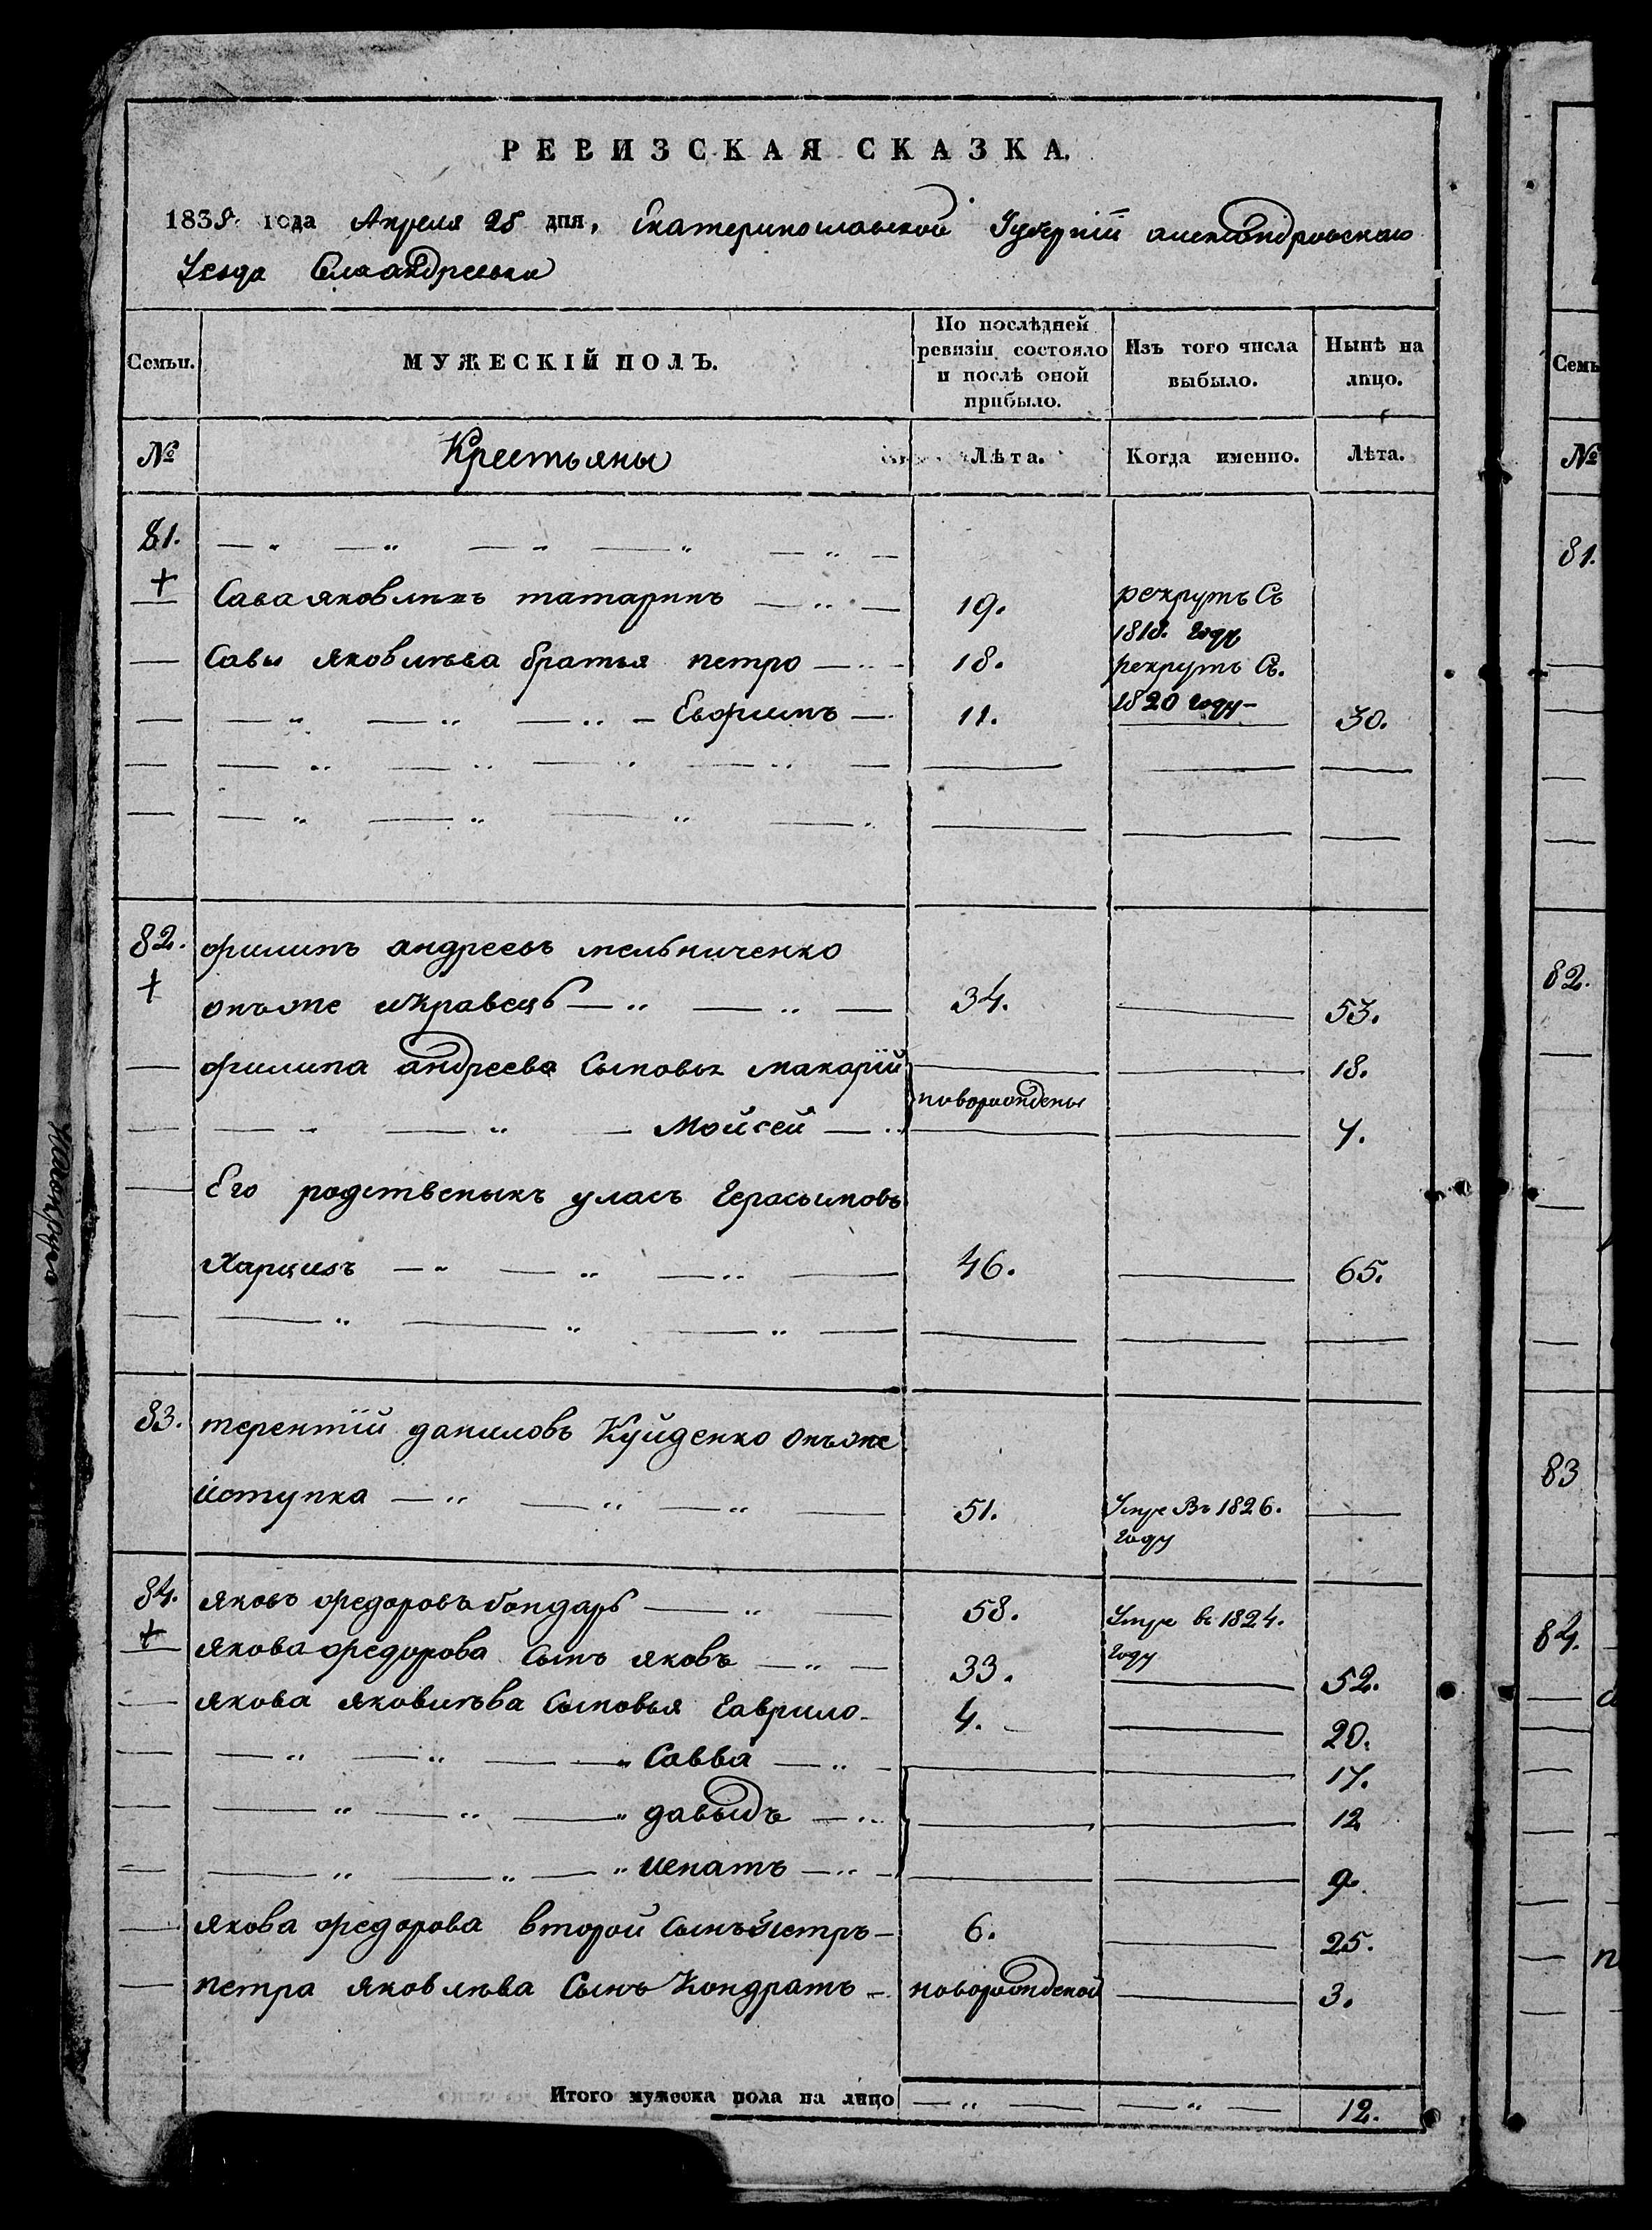 РЕВИЗСКАЯ СКАЗКА.
1835 года Апреля 25 дня, Екатеринославской Губернїи александровскаго
Уезда Села андреевки
Семьи. МУЖЕСКІЙ ПОЛЪ. По послѣдней ревизіи состояло и послѣ оной прибыло. Изъ того числа выбыло. Нынѣ на лицо.
№ Крестьяны Лѣта. Когда именно. Лѣта.
81.
Сава яковлевъ татаринъ 19. рекрутъ Съ 1818. году
Савы яковлева братья петро 18. рекрутъ Съ. 1820 году
Евфимъ 11. 30.
82. филипъ андреевъ мельниченко
онъже икравецъ 34. 53.
филипа андреева Сыновья макарїй 18.
новорождены
Мойсей 7.
Его родственыкъ уласъ Герасымовъ
Харцизъ 46. 65.
83. терентїй даниловъ Куйденко онъже
иступка 51. Умре Въ 1826. году
84. яковъ федоровъ бондарь 58. Умре въ 1824. году
якова федорова Сынъ яковъ 33. 52.
якова яковлева Сыновья Гаврило 4. 20.
Савва 17.
давыдъ 12
игнатъ 9.
якова федорова второй Сынъ петръ 6. 25.
петра яковлева Сынъ Кондратъ новорожденой 3.
Итого мужеска пола на лицо 12.
81.
82.
83
84.